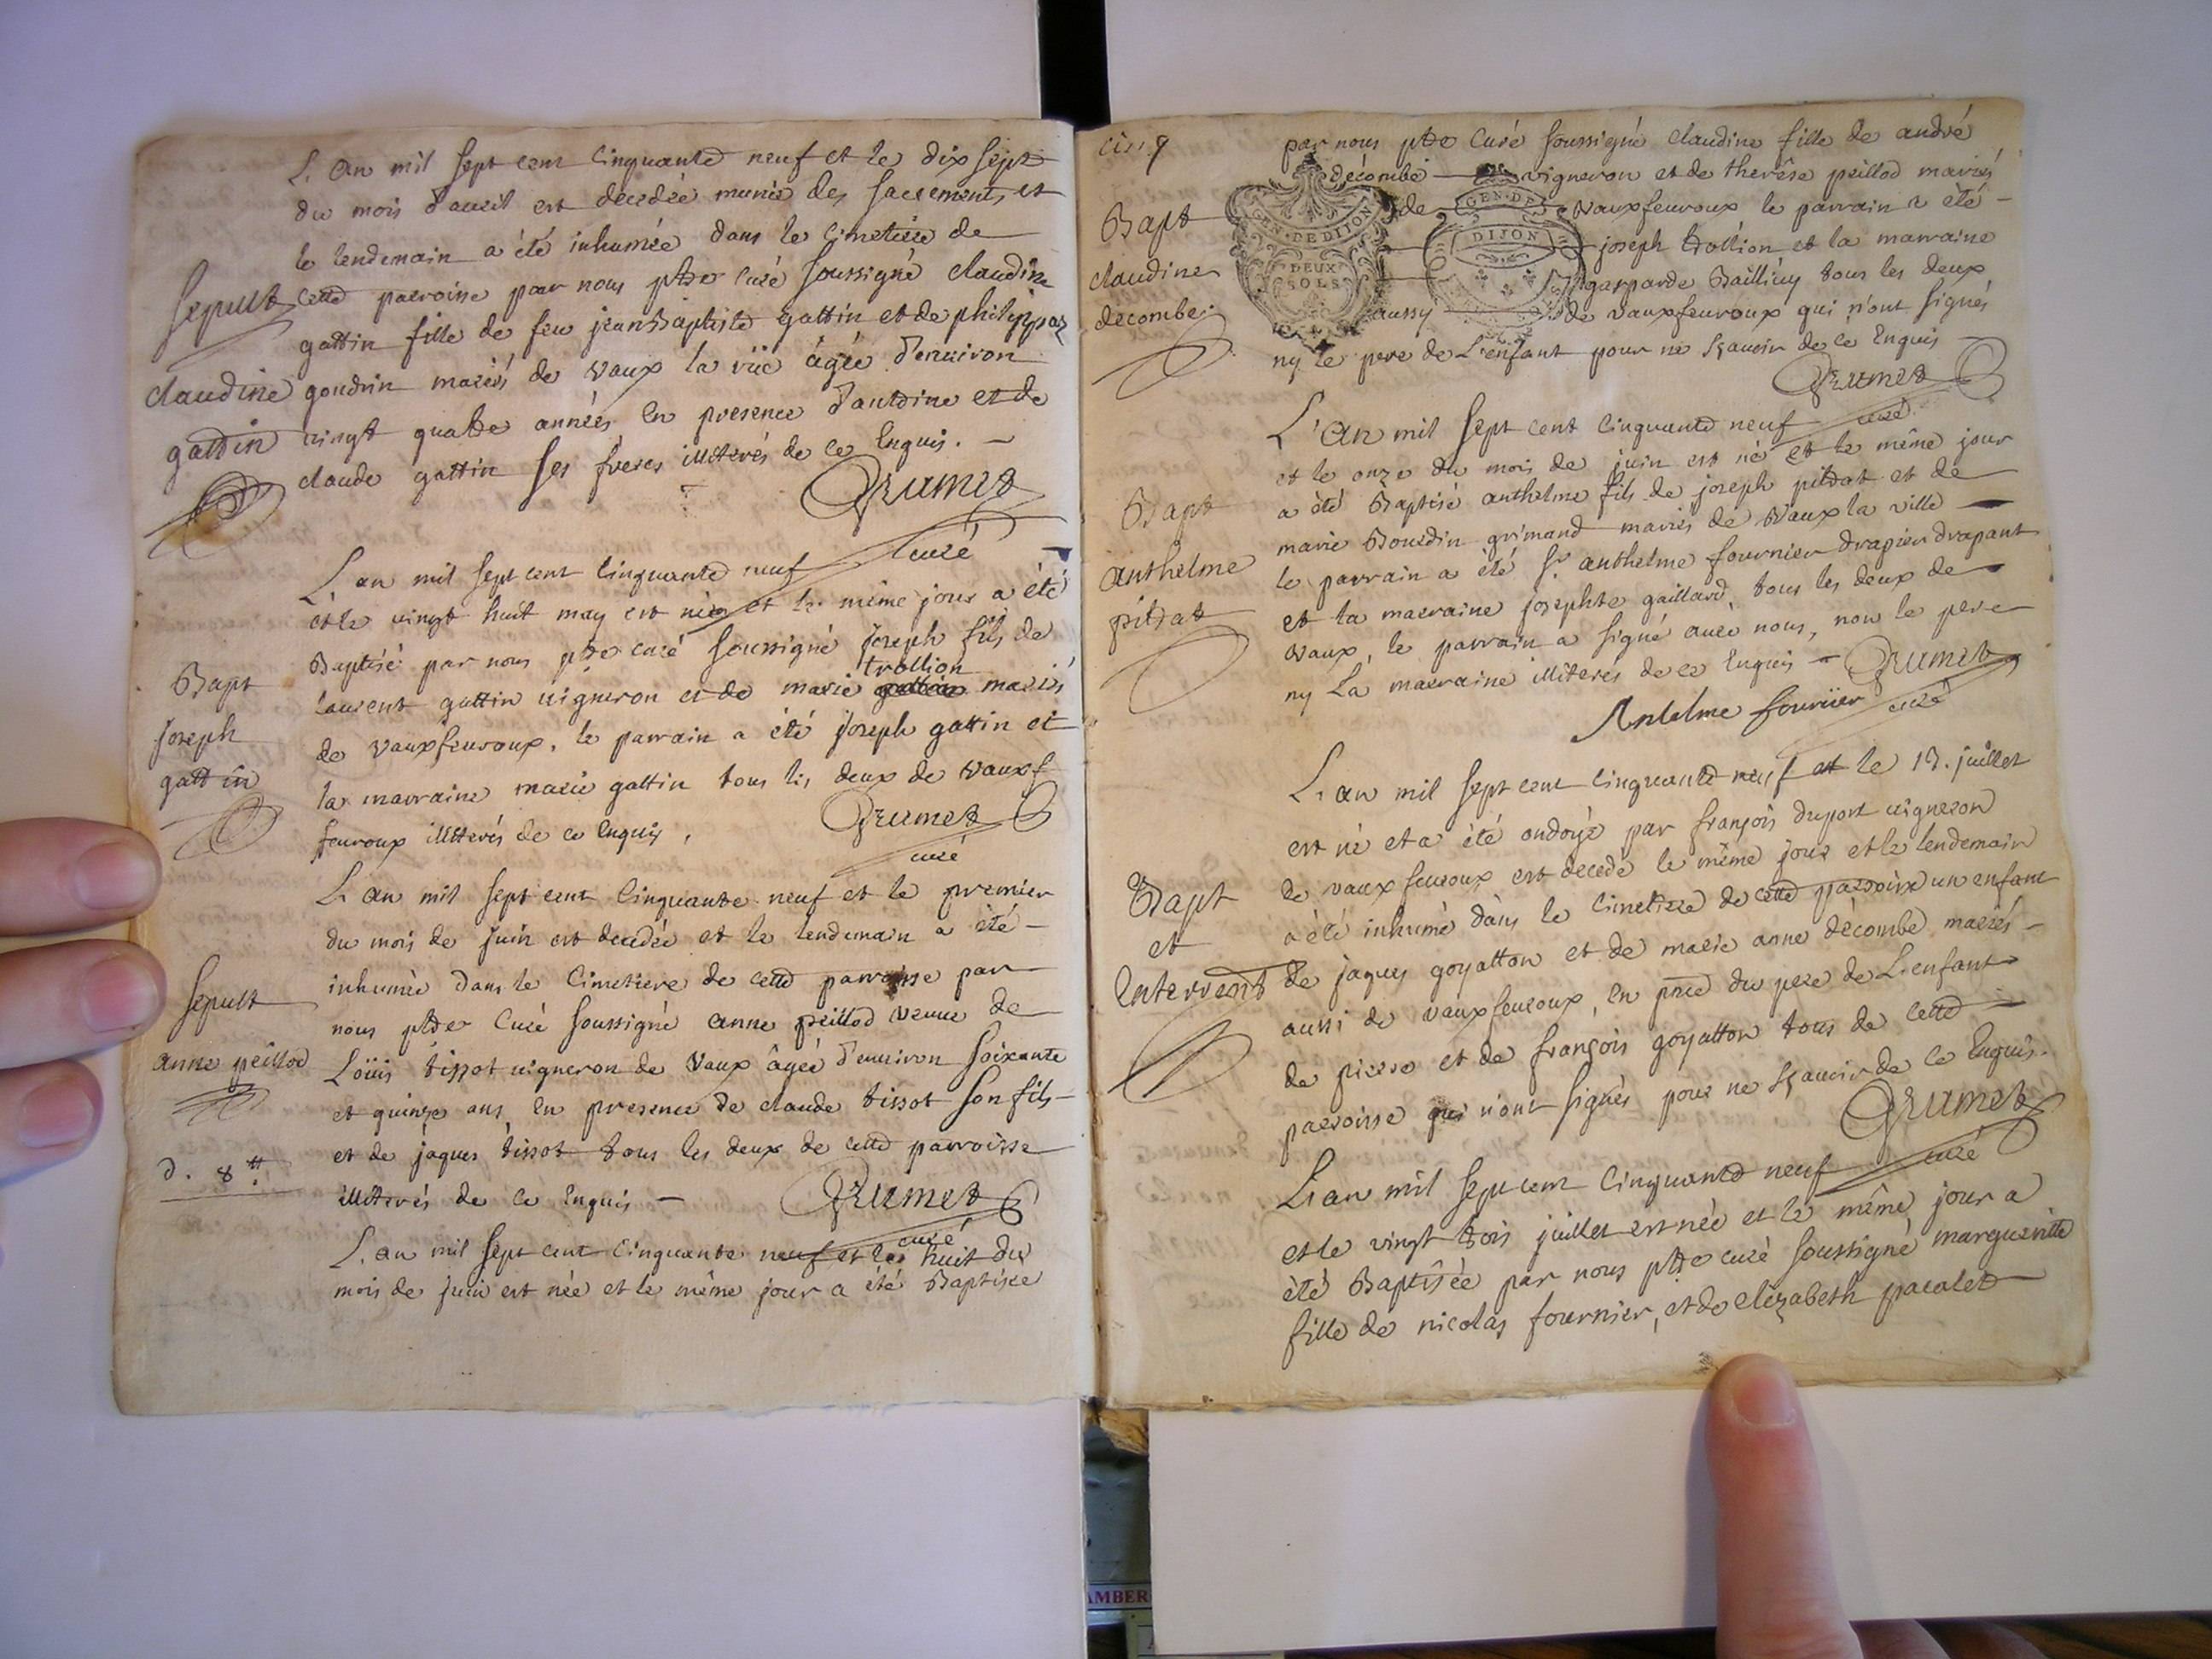 L'an mil sept cent cinquante neuf et le dix sept
du mois d'avril est decedée munie des sacrements et
le lendemain a été inhumée dans le cimetiere de
Sepult cette parroisse par nous ptre curé soussigné claudine
gattin fille de feu jean Baptiste gattin et de philippaz
claudine goudrin mariés de vaux la vïe âgée d'environ
gattin vingt quatre années en presence d'antoine et de
claude gattin ses freres illiterés de ce Enquis. —
Grumet
curé
L'an mil sept cent cinquante neuf
et le vingt huit may est né et le même jour a été
Baptisé par nous ptre curé soussigné Joseph fils de
trollion
Bapt laurent gattin vigneron et de marie mariés
Joseph de vauxfevroux, le parrain a été Joseph gattin et
gattin la marraine marie gattin tous les deux de vauxf
fevroux illiterés de ce Enquis,
Grumet
curé
L'an mil sept cent cinquante neuf et le premier
du mois de juin est decedée et le lendemain a été —
inhumée dans le cimetiere de cette parroisse par
Sepult nous ptre curé soussigné anne peillod veuve de
anne peillod Loüis tissot vigneron de vaux âgée d'environ soixante
et quinze ans, En presence de claude tissot son fils —
et de jaques tissot tous les deux de cette parroisse
d. 8 tt. illiterés de ce Enquis —
Grumet
curé
L'an mil sept cent cinquante neuf et le huit du
mois de juin est née et le même jour a été Baptisée
cinq
par nous ptre curé soussigné claudine fille de andré
décombe — vigneron et de therêse peillod mariés
Bapt de — vauxfevroux le parrain a été —
GEN. DE DIJON
DEUX SOLS
GEN. DE
DIJON
joseph trollion et la marraine
claudine gasparde Baillicy tous les deux
decombe. aussy — de vauxfevroux qui n'ont signés
ny le pere de L'enfant pour ne sçavoir de ce Enquis —
Grumet
curé
L'an mil sept cent cinquante neuf
et le onze du mois de juin est né et le même jour
Bapt a été Baptisé anthelme fils de joseph pitrat et de
marie Bourdin grimand mariés de vaux la ville —
anthelme le parrain a été sr. anthelme fournier drapier drapant
pitrat et la marraine josephte gaillard, tous les deux de
vaux, le parrain a signé avec nous, non le pere
ny La marraine illiterés de ce Enquis —
Grumet
curé
Antelme fournier
L'an mil sept cent cinquante neuf et le 13. juillet
est né et a été ondoyé par françois duport vigneron
de vauxfevroux est decedé le même jour et le lendemain
Bapt a été inhumé dans le cimetiere de cette parroisse un enfant
et de jaques goyatton et de marie anne décombe mariés —
Enterrent aussi de vauxfevroux, En pnce du pere de L'enfant
de pierre et de françois goyatton tous de cette —
paroisse qui n'ont signés pour ne sçavoir de ce Enquis.
Grumet
curé
L'an mil sept cent cinquante neuf
et le vingt trois juillet est née et le même jour a
été Baptîsée par nous ptre curé soussigné marguerite
fille de nicolas fournier, et de elizabeth pacalet